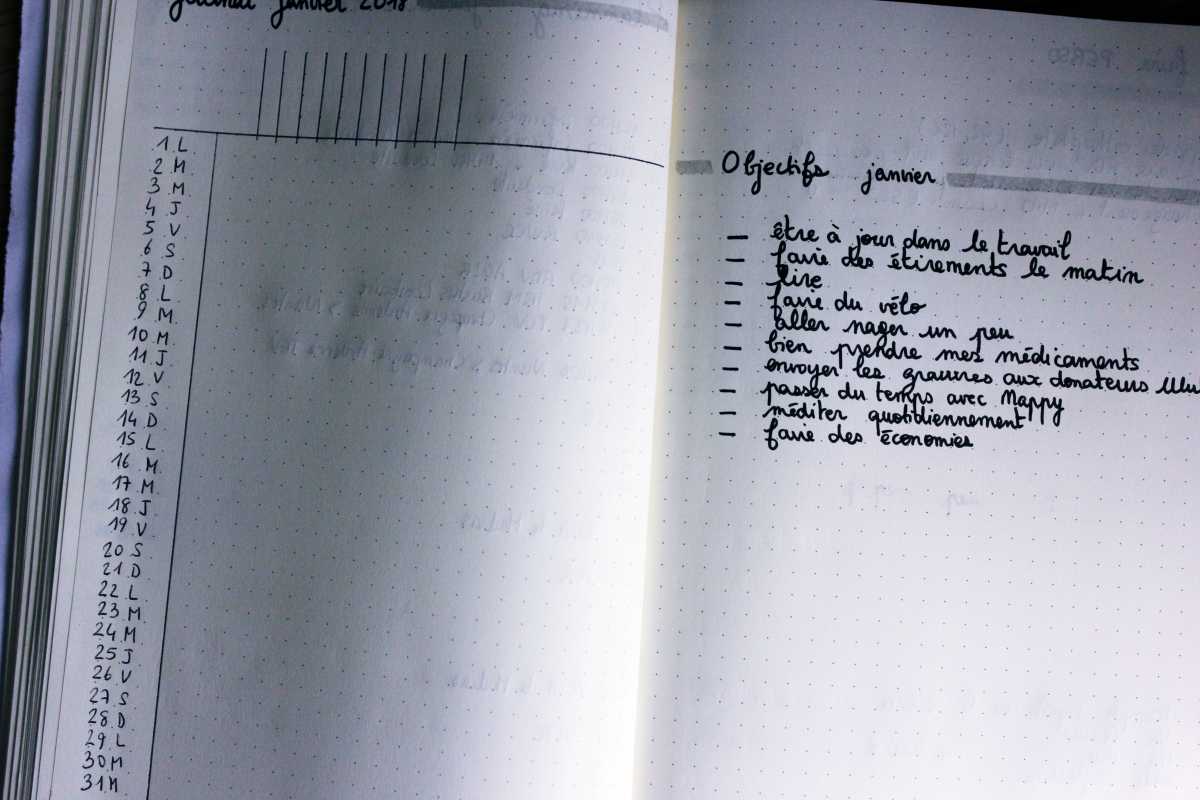 journal janvier 2018
1 L
2 M
3 M
4 J
5 V
6 S
7 D
8 L
9 M
10 M
11 J
12 V
13 S
14 D
15 L
16 M
17 M
18 J
19 V
20 S
21 D
22 L
23 M
24 M
25 J
26 V
27 S
28 D
29 L
30 M
31 M
Objectifs janvier
– être à jour dans le travail
– faire des étirements le matin
– lire
– faire du vélo
– aller nager un peu
– bien prendre mes médicaments
– envoyer les gravures aux donateurs Ulu
– passer du temps avec Mappy
– méditer quotidiennement
– faire des économies